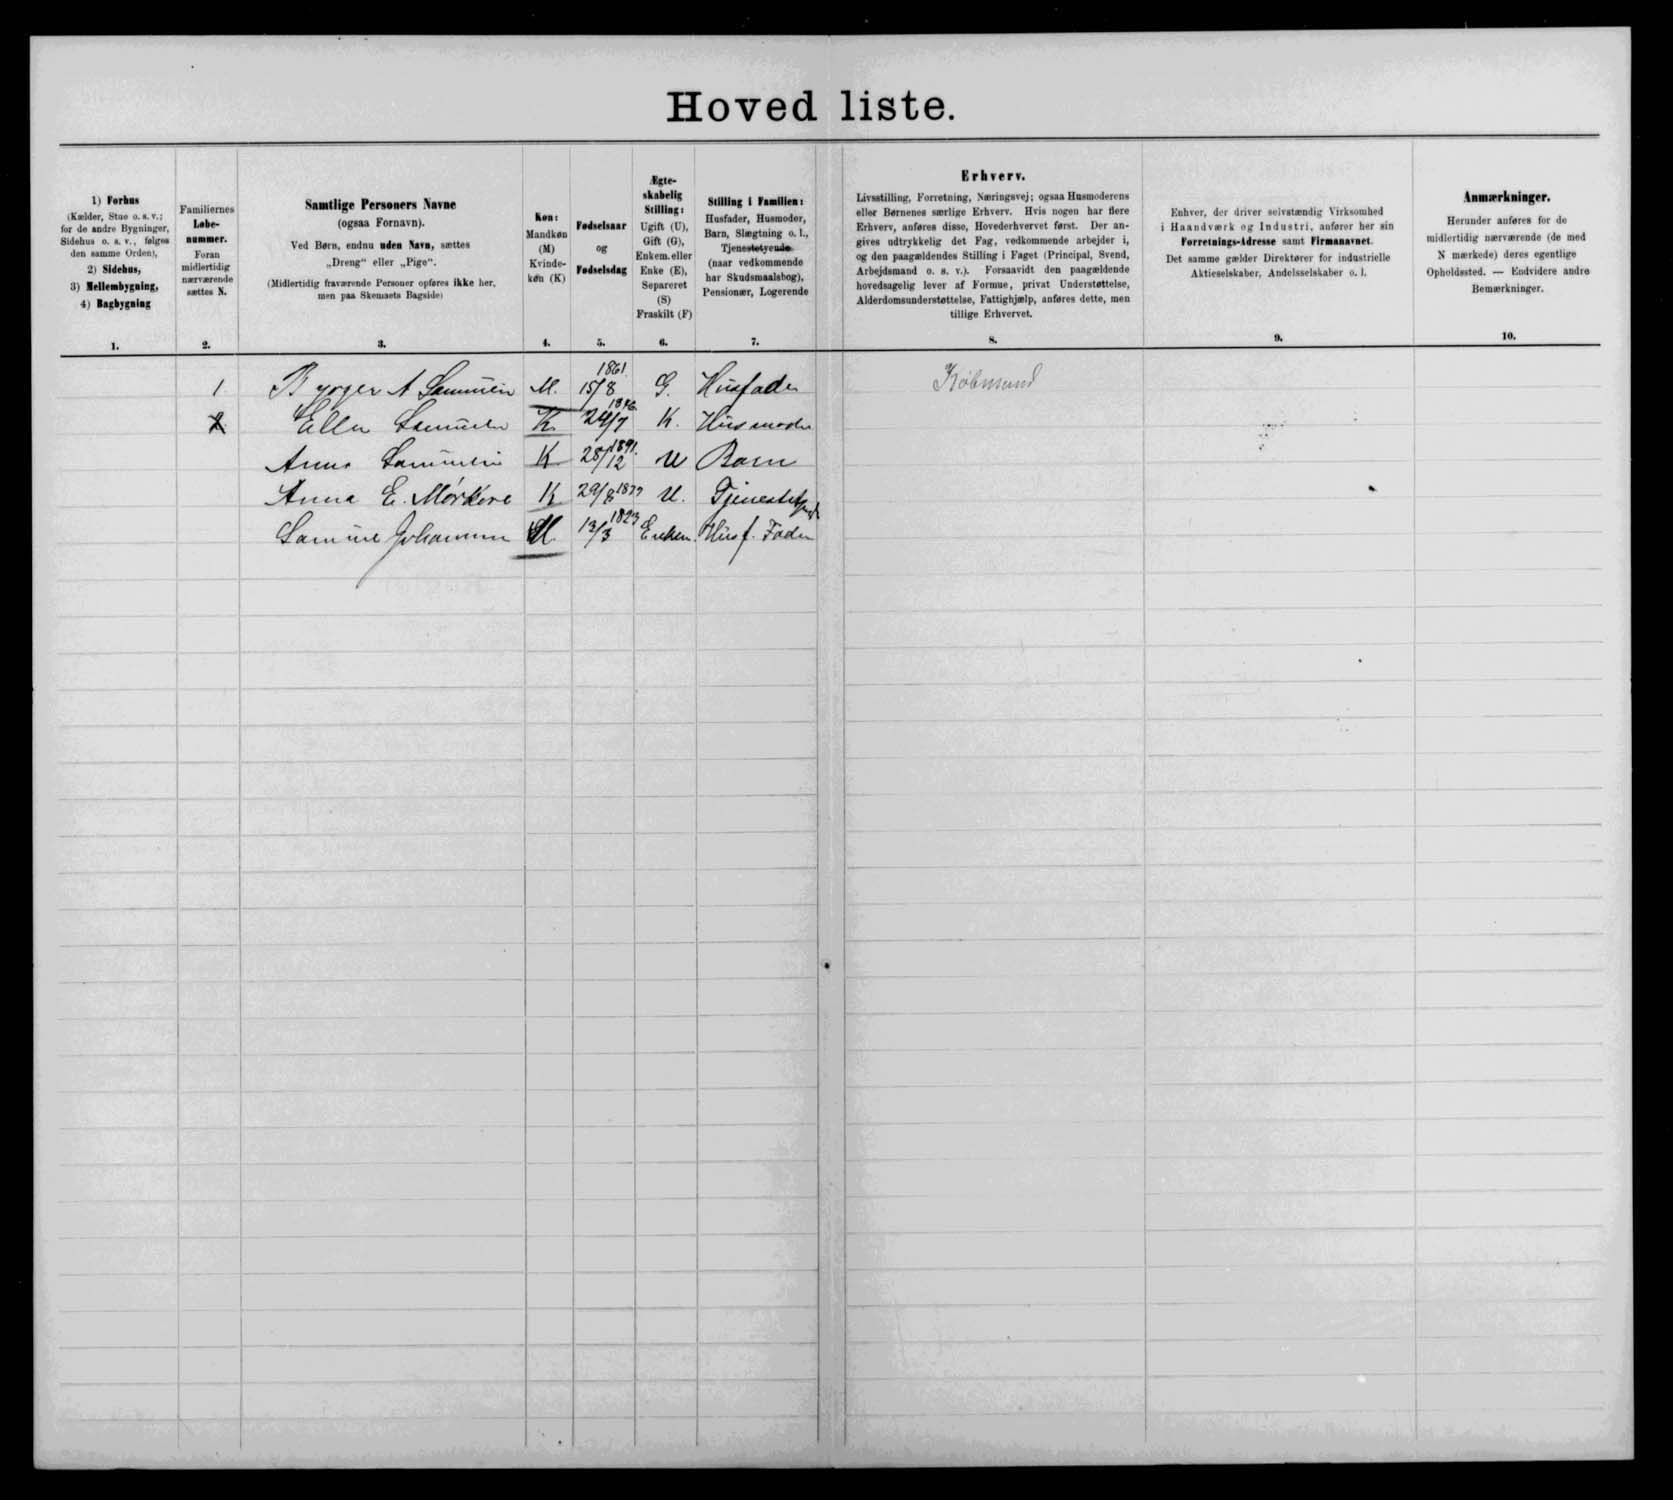 Hovedliste.
1) Forhus
(Kælder, Stue o. s. v.;
for de andre Bygninger,
Sidehus o. s. v., følges
den samme Orden),
2) Sidehus,
3) Mellembygning,
4) Bagbygning
1.
Familiernes
Løbe-
nummer.
Foran
midlertidig
nærværende
sættes N.
2.
Samtlige Personers Navne
(ogsaa Fornavn).
Ved Børn, endnu uden Navn, sættes
„Dreng“ eller „Pige“.
(Midlertidig fraværende Personer opføres ikke her,
men paa Skemaets Bagside)
3.
Køn:
Mandkøn
(M)
Kvinde-
køn (K)
4.
Fødselsaar
og
Fødselsdag
5.
Ægte-
skabelig
Stilling:
Ugift (U),
Gift (G),
Enkem. eller
Enke (E),
Separeret
(S)
Fraskilt (F)
6.
Stilling i Familien:
Husfader, Husmoder,
Barn, Slægtning o. l.,
Tjenestetyende
(naar vedkommende
har Skudsmaalsbog),
Pensionær, Logerende
7.
Erhverv.
Livsstilling, Forretning, Næringsvej; ogsaa Husmoderens
eller Børnenes særlige Erhverv. Hvis nogen har flere
Erhverv, anføres disse, Hovederhvervet først. Der an-
gives udtrykkelig det Fag, vedkommende arbejder i,
og den paagældendes Stilling i Faget (Principal, Svend,
Arbejdsmand o. s. v.). Forsaavidt den paagældende
hovedsagelig lever af Formue, privat Understøttelse,
Alderdomsunderstøttelse, Fattighjælp, anføres dette, men
tillige Erhvervet.
8.
Enhver, der driver selvstændig Virksomhed
i Haandværk og Industri, anfører her sin
Forretnings-Adresse samt Firmanavnet.
Det samme gælder Direktører for industrielle
Aktieselskaber, Andelsselskaber o. l.
9.
Anmærkninger.
Herunder anføres for de
midlertidig nærværende (de med
N mærkede) deres egentlige
Opholdssted. — Endvidere andre
Bemærkninger.
10.
1. Byrger A Samuelsen M. 1861. 15/8 G. Husfader Købmand
Ellen Samuelsen K. 1846. 24/7 K. Husmoder
Anna Samuelsen K 1891. 28/12 U Barn
Anna E. Mørkøre K 29/8 1877 U. Tjeneste
Samuel Johannsen M. 1823 13/3 Enkem. Husf. Fader